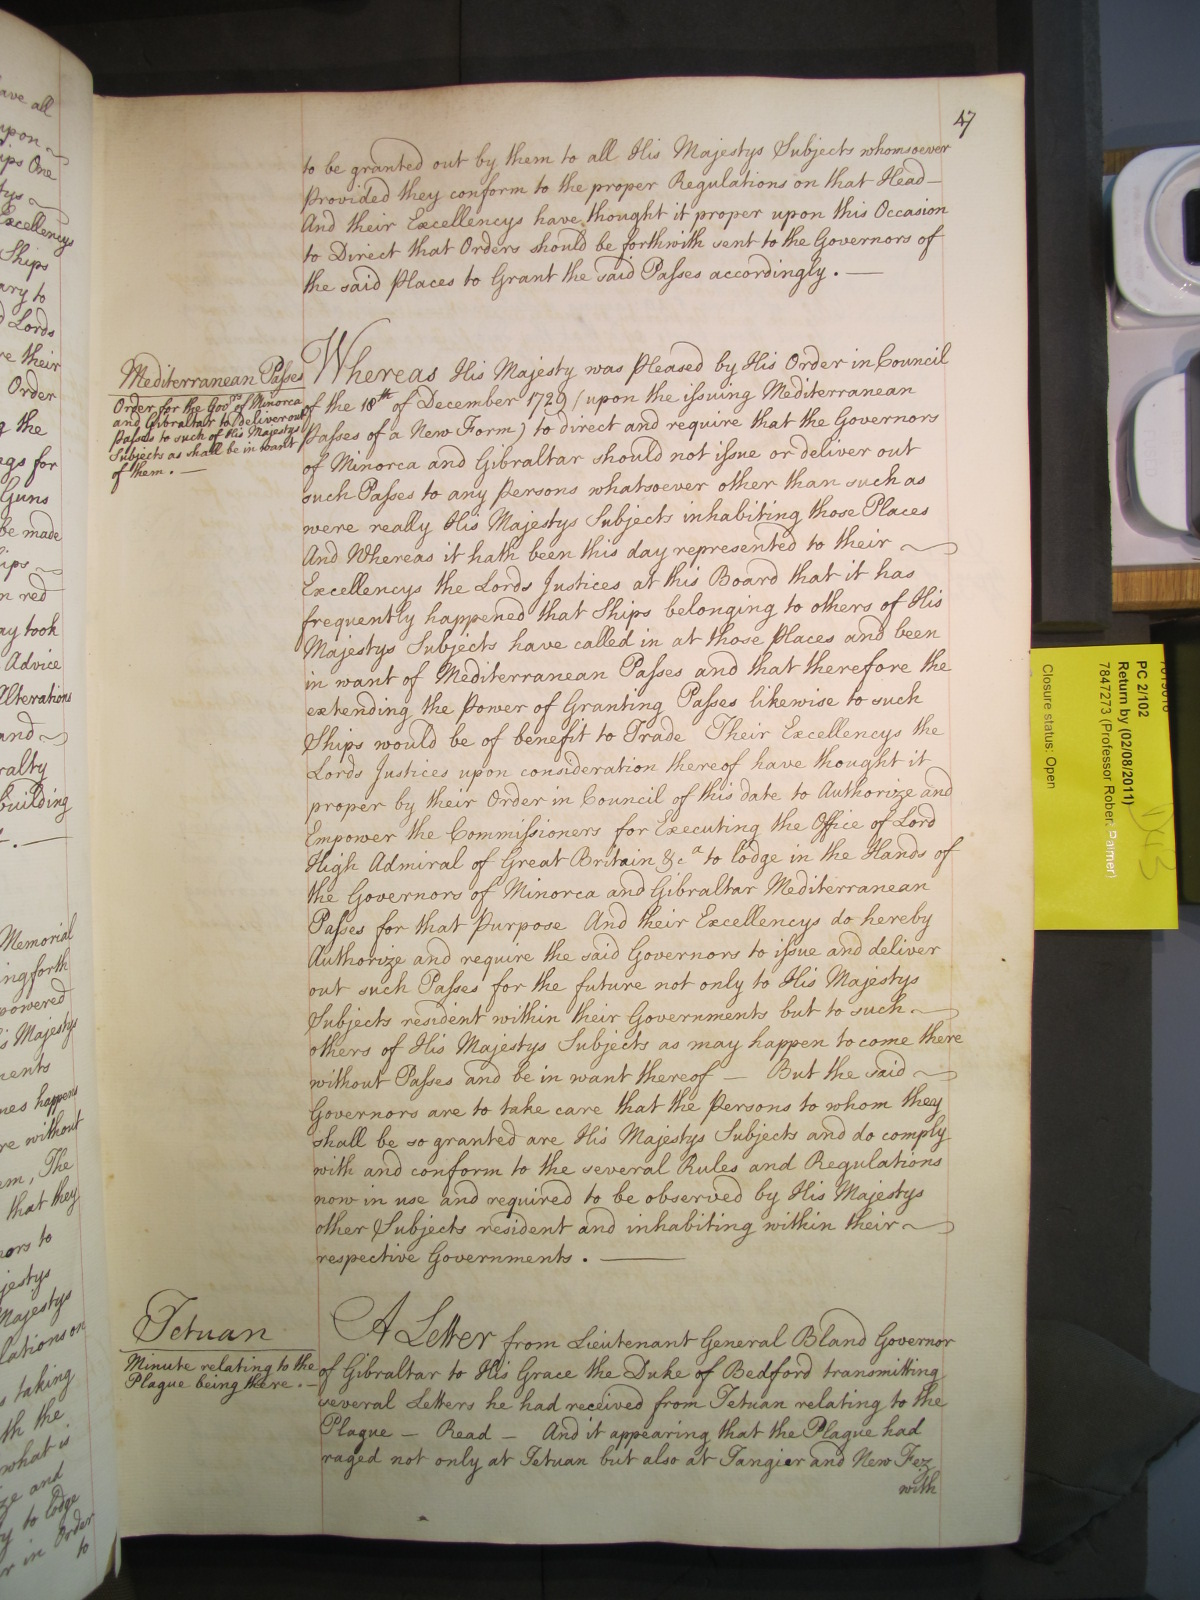 47
to be granted out by them to all His Majestys Subjects whomsoever
Provided they conform to the proper Regulations on that Head—
And their Excellencys have thought it proper upon this Occasion
to Direct that Orders should be forthwith sent to the Governors of
the said Places to Grant the said Passes accordingly. —
Mediterranean Passes
Order for the Govrs. of Minorca
and Gibraltar to deliver out
Passes to such of His Majestys
Subjects as shall be in want
of them. —
Whereas His Majesty was pleased by His Order in Council
of the 18th of December 1729 (upon the issuing Mediterranean
Passes of a New Form) to direct and require that the Governors
of Minorca and Gibraltar should not issue or deliver out
such Passes to any Persons whatsoever other than such as
were really His Majestys Subjects inhabiting those Places
And Whereas it hath been this day represented to their
Excellencys the Lords Justices at this Board that it has
frequently happened that Ships belonging to others of His
Majestys Subjects have called in at those Places and been
in want of Mediterranean Passes and that therefore the
extending the Power of Granting Passes likewise to such
Ships would be of benefit to Trade Their Excellencys the
Lords Justices upon consideration thereof have thought it
proper by their Order in Council of this date to Authorize and
Empower the Commissioners for Executing the Office of Lord
High Admiral of Great Britain &ca to lodge in the Hands of
the Governors of Minorca and Gibraltar Mediterranean
Passes for that Purpose And their Excellencys do hereby
Authorize and require the said Governors to issue and deliver
out such Passes for the future not only to His Majestys
Subjects resident within their Governments but to such
others of His Majestys Subjects as may happen to come there
without Passes and be in want thereof — But the said
Governors are to take care that the Persons to whom they
shall be so granted are His Majestys Subjects and do comply
with and conform to the several Rules and Regulations
now in use and required to be observed by His Majestys
other Subjects resident and inhabiting within their
respective Governments. —
Tetuan
Minute relating to the
Plague being there. —
A Letter from Lieutenant General Bland Governor
of Gibraltar to His Grace the Duke of Bedford transmitting
several Letters he had received from Tetuan relating to the
Plague — Read — And it appearing that the Plague had
raged not only at Tetuan but also at Tangier and New Fez
with
PC 2/102
Return by (02/08/2011)
7847273 (Professor Robert Palmer)
Closure status: Open
have all
upon
ships One
Excellencys
Ships
to
Lords
their
Order
the
for
Guns
be made
red
took
Advice
Alterations
and
building
Memorial
forth
Majestys
happens
without
The
that they
to
Majestys
on
taking
the
what is
and
to lodge
in Order
to